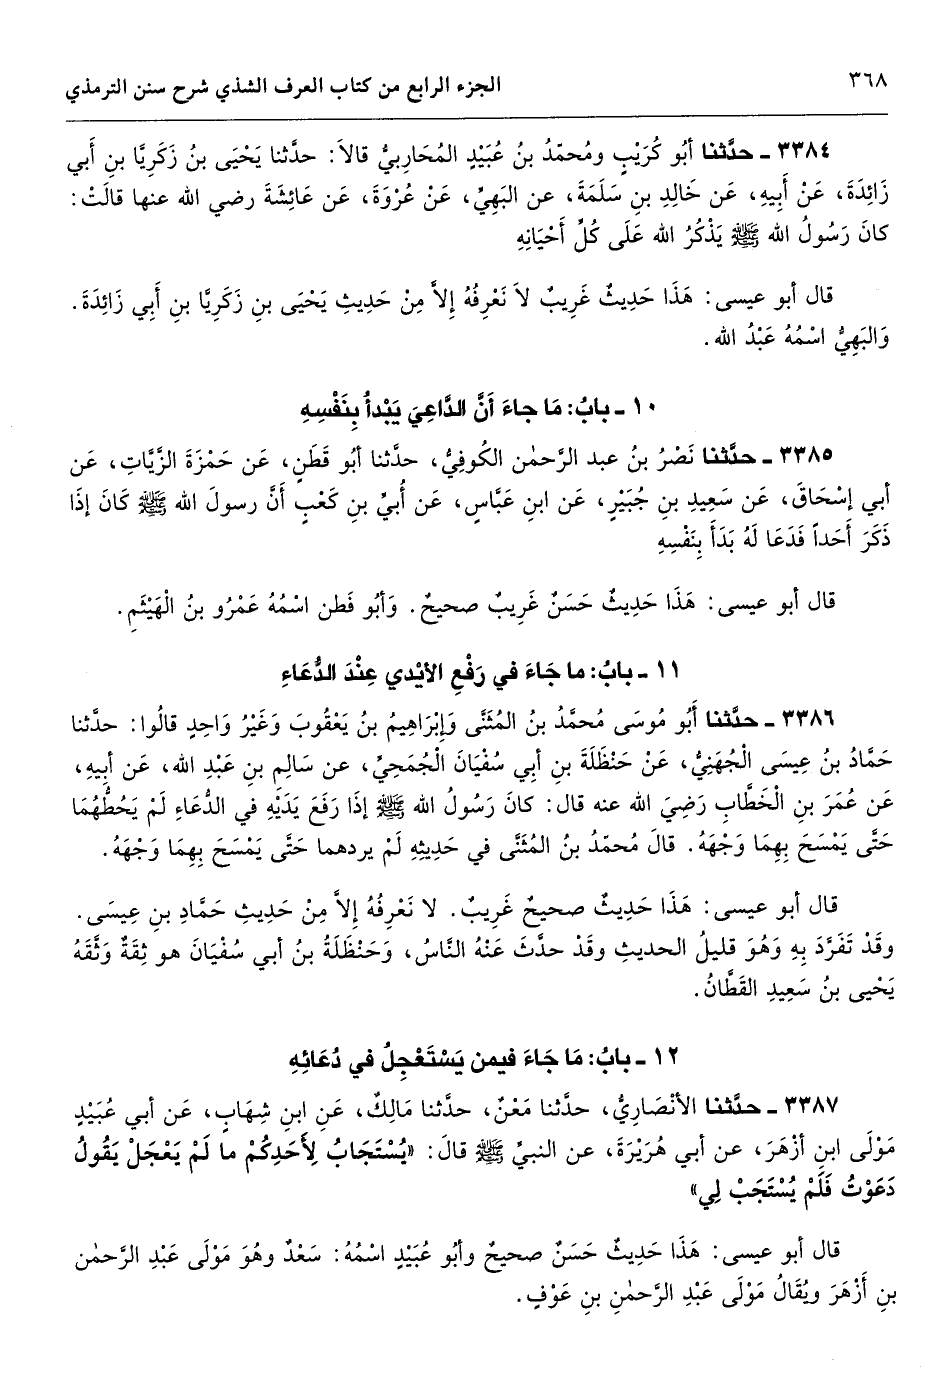 ٣٦٨
الجزء الرابع من كتاب العرف الشذي شرح سنن الترمذي
٣٣٨٤ ـ حدَّثنا أبُو كُرَيْبٍ ومُحمّدُ بنُ عُبَيْدٍ المُحَارِبيُّ قالاَ: حدَّثنا يَحْيَى بنُ زَكَرِيَّا بنِ أَبي
زَائِدَةَ، عَنْ أَبيهِ، عَن خَالِدِ بنِ سَلَمَةَ، عن البَهِيِّ، عَنْ عُرْوَةَ، عَن عَائِشَةَ رضي الله عنها قالَتْ:
كانَ رَسُولُ الله ﷺ يَذْكُرُ الله عَلَى كُلِّ أَحْيَانِهِ
قال أبو عيسى: هَذَا حَدِيثٌ غَرِيبٌ لا نَعْرِفُهُ إلاَّ مِنْ حَدِيثِ يَحْيَى بنِ زَكَرِيَّا بنِ أَبي زَائِدَةَ.
وَالبَهِيُّ اسْمُهُ عَبْدُ الله.
١٠ ـ بابُ: مَا جاءَ أَنَّ الدَّاعِيَ يَبْدأُ بِنَفْسِهِ
٣٣٨٥ ـ حدَّثنا نَصْرُ بنُ عبد الرَّحمٰن الكُوفِيُّ، حدَّثنا أبُو قَطَنٍ، عَن حَمْزَةَ الزَّيَّاتِ، عَن
أبي إسْحَاقَ، عَن سَعِيدِ بنِ جُبَيْرٍ، عَن ابنِ عَبَّاسٍ، عَن أُبيِّ بنِ كَعْبٍ أَنَّ رسولَ الله ﷺ كَانَ إذَا
ذَكَرَ أَحَداً فَدَعَا لَهُ بَدَأَ بِنَفْسِهِ
قال أبو عيسى: هَذَا حَدِيثٌ حَسَنٌ غَرِيبٌ صحيحٌ. وَأبُو فَطن اسْمُهُ عَمْرُو بنُ الْهَيْثَمِ.
١١ ـ بابُ: ما جَاءَ في رَفْعِ الأيْدي عِنْدَ الدُّعَاءِ
٣٣٨٦ ـ حدَّثنا أَبُو مُوسَى مُحمَّدُ بنُ المُثَنَّى وَإِبْرَاهِيمُ بنُ يَعْقُوبَ وَغَيْرُ وَاحِدٍ قالُوا: حدَّثنا
حَمَّادُ بنُ عِيسَى الْجُهَنِيُّ، عَنْ حَنْظَلَةَ بنِ أبي سُفْيَانَ الْجُمَحِيِّ، عن سَالِمِ بنِ عَبْدِ الله، عَن أبيهِ،
عَن عُمَرَ بنِ الْخَطَّابِ رَضِيَ الله عنه قال: كانَ رَسُولُ الله ﷺ إذَا رَفَعَ يَدَيْهِ في الدُّعَاءِ لَمْ يَحُطُّهُمَا
حَتَّى يَمْسَحَ بِهِمَا وَجْهَهُ. قالَ مُحمّدُ بنُ المُثَنَّى في حَدِيثِهِ لَمْ يردهما حَتَّى يَمْسَحَ بِهِمَا وَجْهَهُ.
قال أبو عيسى: هَذَا حَدِيثٌ صحيحٌ غَرِيبٌ. لا نَعْرِفُهُ إلاَّ مِنْ حَدِيثِ حَمَّادِ بنِ عِيسَى.
وقَدْ تَفَرَّدَ بِهِ وَهُوَ قليلُ الحديثِ وقَدْ حدَّثَ عَنْهُ النَّاسُ، وَحَنْظَلَةُ بنُ أبي سُفْيَانَ هو ثِقَةٌ وَثَّقَهُ
يَحْيى بنُ سَعِيدِ القَطَّانُ.
١٢ ـ بابُ: مَا جَاءَ فيمن يَسْتَعْجِلُ في دُعَائِهِ
٣٣٨٧ ـ حدَّثنا الأنْصَارِيُّ، حدَّثنا مَعْنٌ، حدَّثنا مَالِكٌ، عَنِ ابنِ شِهَابِ، عَن أبي عُبَيْدٍ
مَوْلَى ابنِ أزْهَرَ، عن أبي هُرَيْرَةَ، عن النبيِّ ﷺ قالَ: «يُسْتَجَابُ لِأَحَدِكُمْ ما لَمْ يَعْجَلْ يَقُولُ
دَعَوْتُ فَلَمْ يُسْتَجَبْ لِي»
قال أبو عيسى: هَذَا حَدِيثٌ حَسَنٌ صحيحٌ وأبو عُبَيْدٍ اسْمُهُ: سَعْدٌ وهُوَ مَوْلَى عَبْدِ الرَّحمٰن
بنِ أَزْهَرَ ويُقَالُ مَوْلَى عَبْدِ الرَّحمٰنِ بنِ عَوْفٍ.